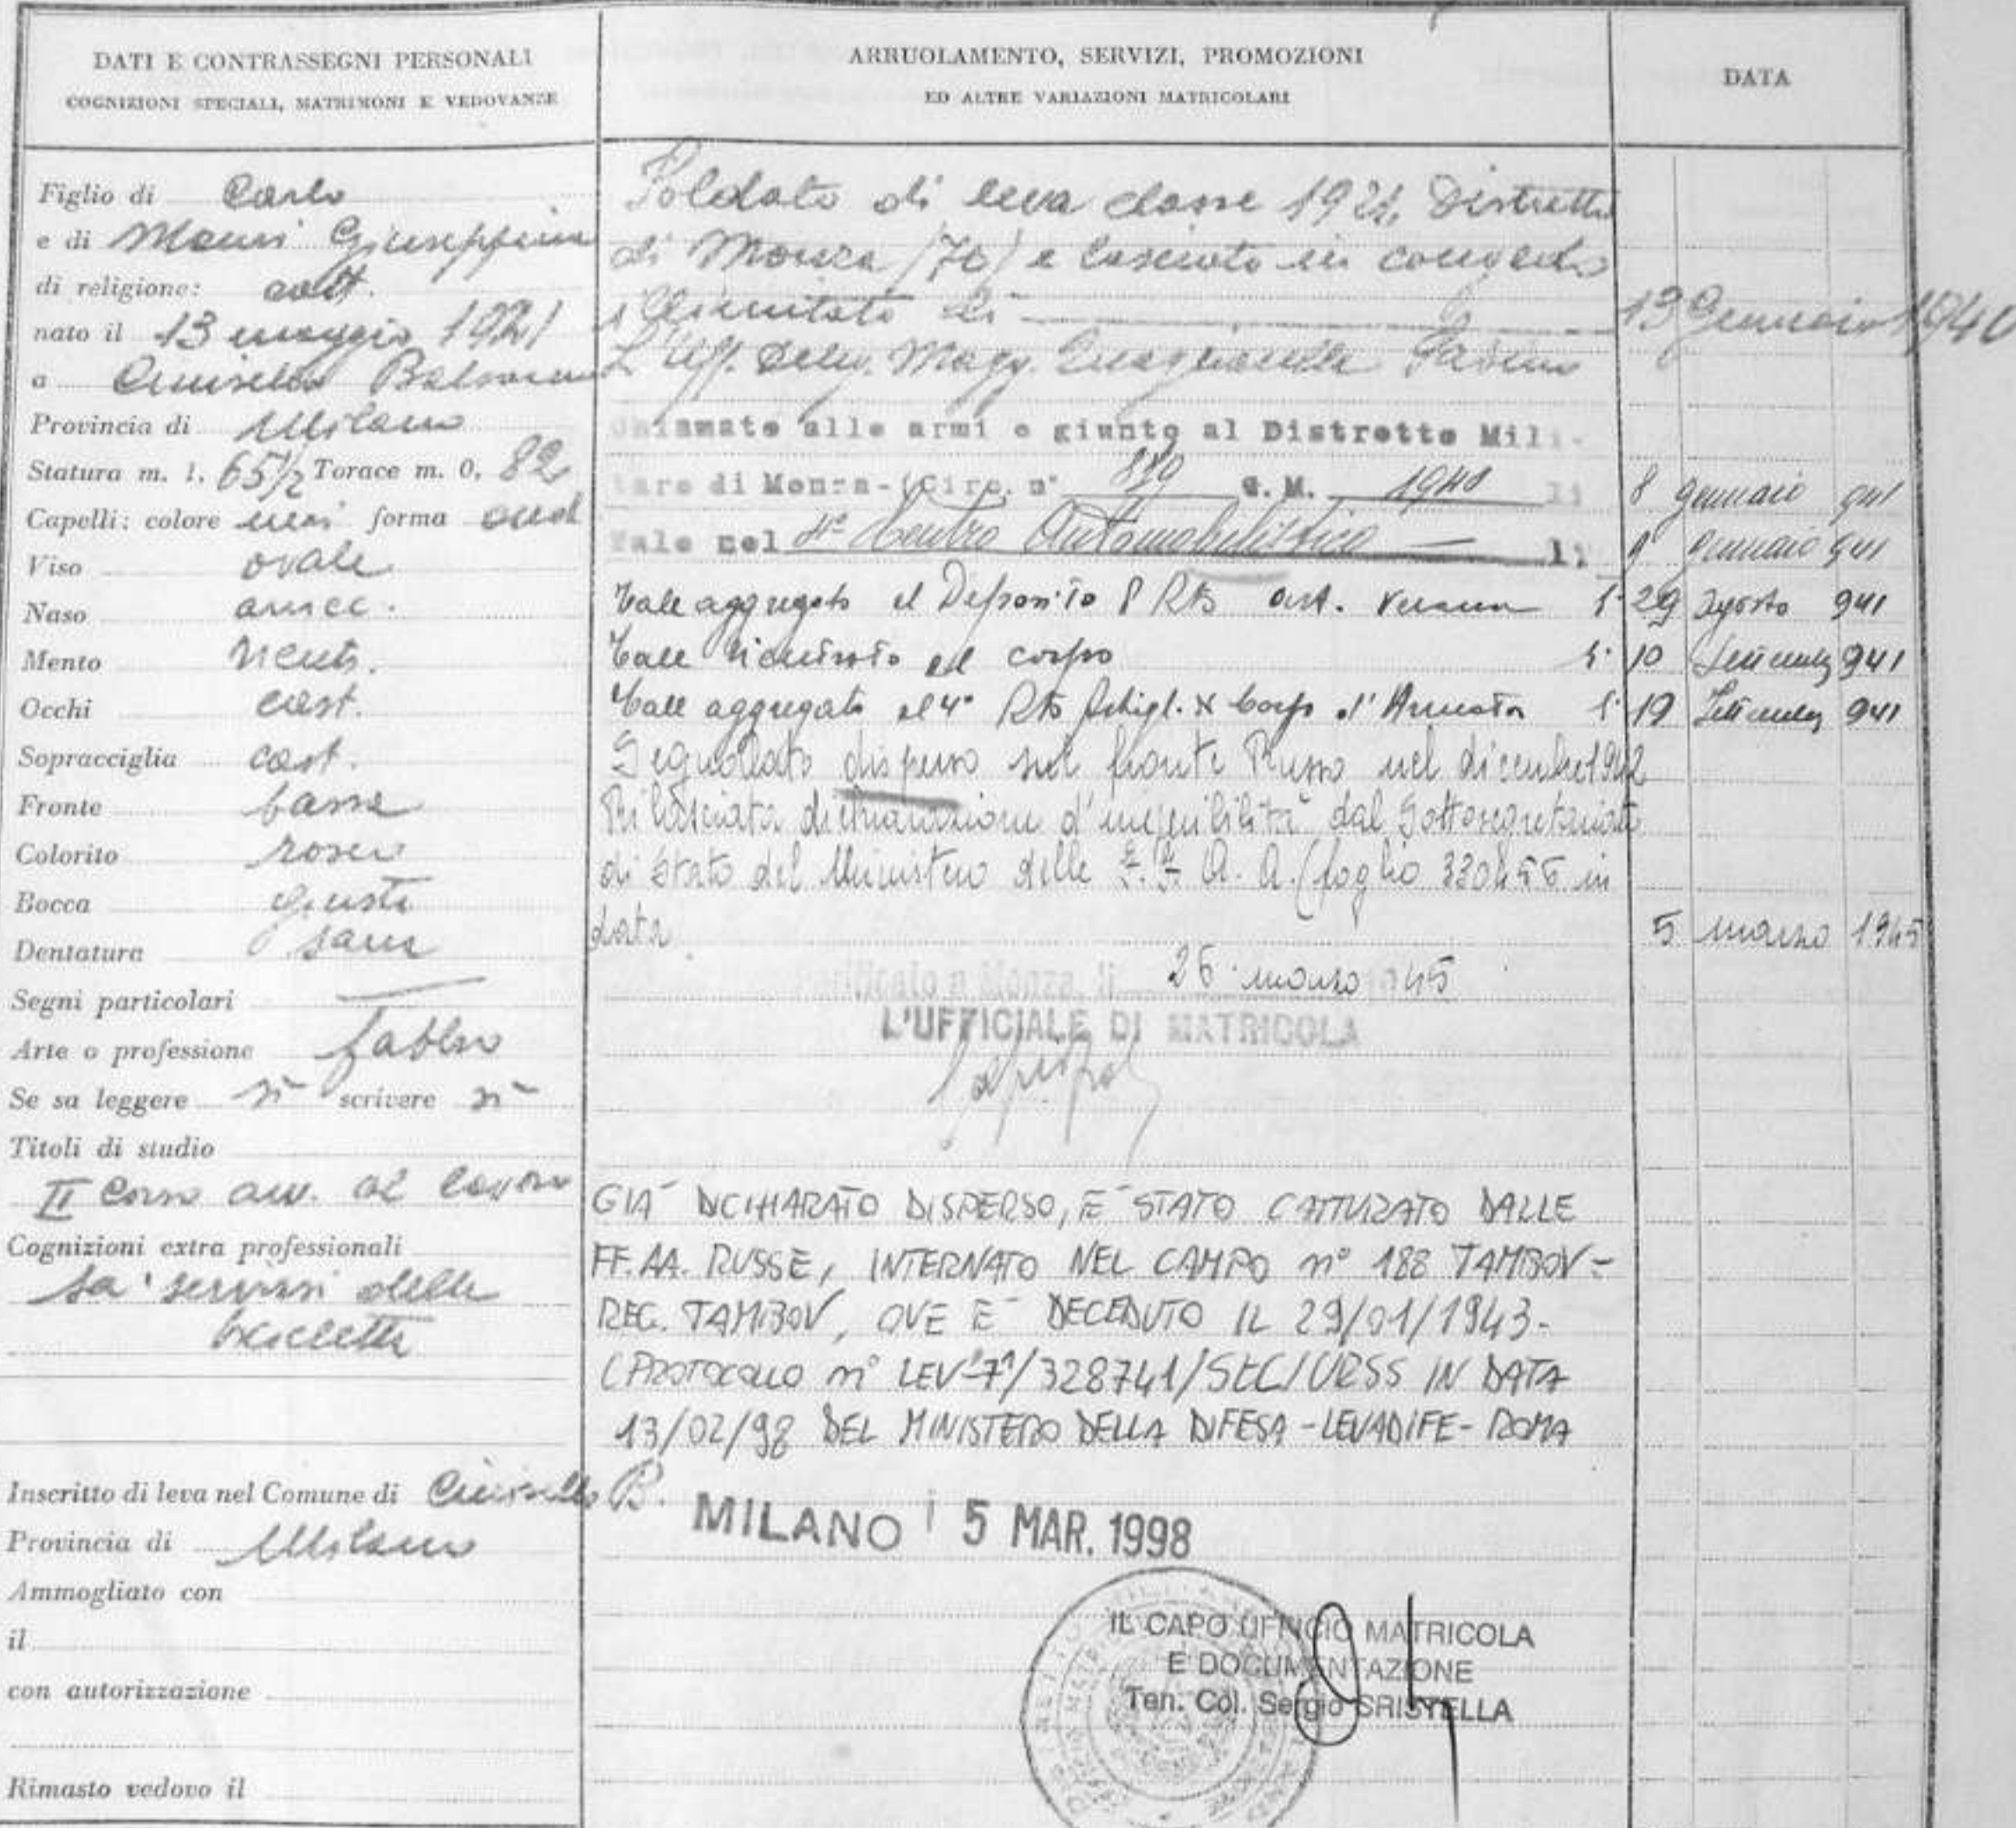 DATI E CONTRASSEGNI PERSONALI
COGNIZIONI SPECIALI, MATRIMONI E VEDOVANZE
ARRUOLAMENTO, SERVIZI, PROMOZIONI
ED ALTRE VARIAZIONI MATRICOLARI
DATA
Figlio di Carlo
e di Mauri Giuseppina
di religione: catt.
nato il 13 maggio 1921
a Cinisello Balsamo
Provincia di Milano
Statura m. 1, 65½ Torace m. 0, 82
Capelli: colore neri forma ond
Viso ovale
Naso
Mento
Occhi cast.
Sopracciglia cast.
Fronte bassa
Colorito roseo
Bocca giusta
Dentatura sana
Segni particolari —
Arte o professione fabbro
Se sa leggere sì scrivere sì
Titoli di studio
II Corso avv. al lavoro
Cognizioni extra professionali
sa servirsi della
bicicletta
Inscritto di leva nel Comune di Cinisello B.
Provincia di Milano
Ammogliato con
il
con autorizzazione
Rimasto vedovo il
Soldato di leva classe 1921, Distretto
di Monza (70) e lasciato in congedo
illimitato li 13 Gennaio 1940
L'Uff. Deleg. Magg.
Chiamato alle armi e giunto al Distretto Mili-
tare di Monza-(Circ. n° 819 G.M. 1940 li 8 gennaio 941
Tale nel 4° Centro Automobilistico — li 9 gennaio 941
Tale aggregato al Deposito 8 Rto art. Verona li 29 Agosto 941
Tale rientrato al corpo li 10 Settembre 941
Tale aggregato al 4° Rto Artigl. Corpo d'Armata li 19 Settembre 941
Segnalato disperso sul fronte Russo nel dicembre 1942
Rilasciata dichiarazione d'irreperibilità dal Sottosegretariato
di Stato del Ministero delle FF. A. A. (foglio in
data 5 marzo 1945
Parificato a Monza, li 26 marzo 1945
L'UFFICIALE DI MATRICOLA
GIA' DICHIARATO DISPERSO, E' STATO CATTURATO DALLE
FF.AA. RUSSE, INTERNATO NEL CAMPO n° 188 TAMBOV-
REG. TAMBOV, OVE E' DECEDUTO IL 29/01/1943-
(PROTOCOLLO n° LEV-7ª/328741/SEC/URSS IN DATA
13/02/98 DEL MINISTERO DELLA DIFESA-LEVADIFE-ROMA
MILANO 5 MAR. 1998
IL CAPO UFFICIO MATRICOLA
E DOCUMENTAZIONE
Ten. Col. Sergio SRISTELLA